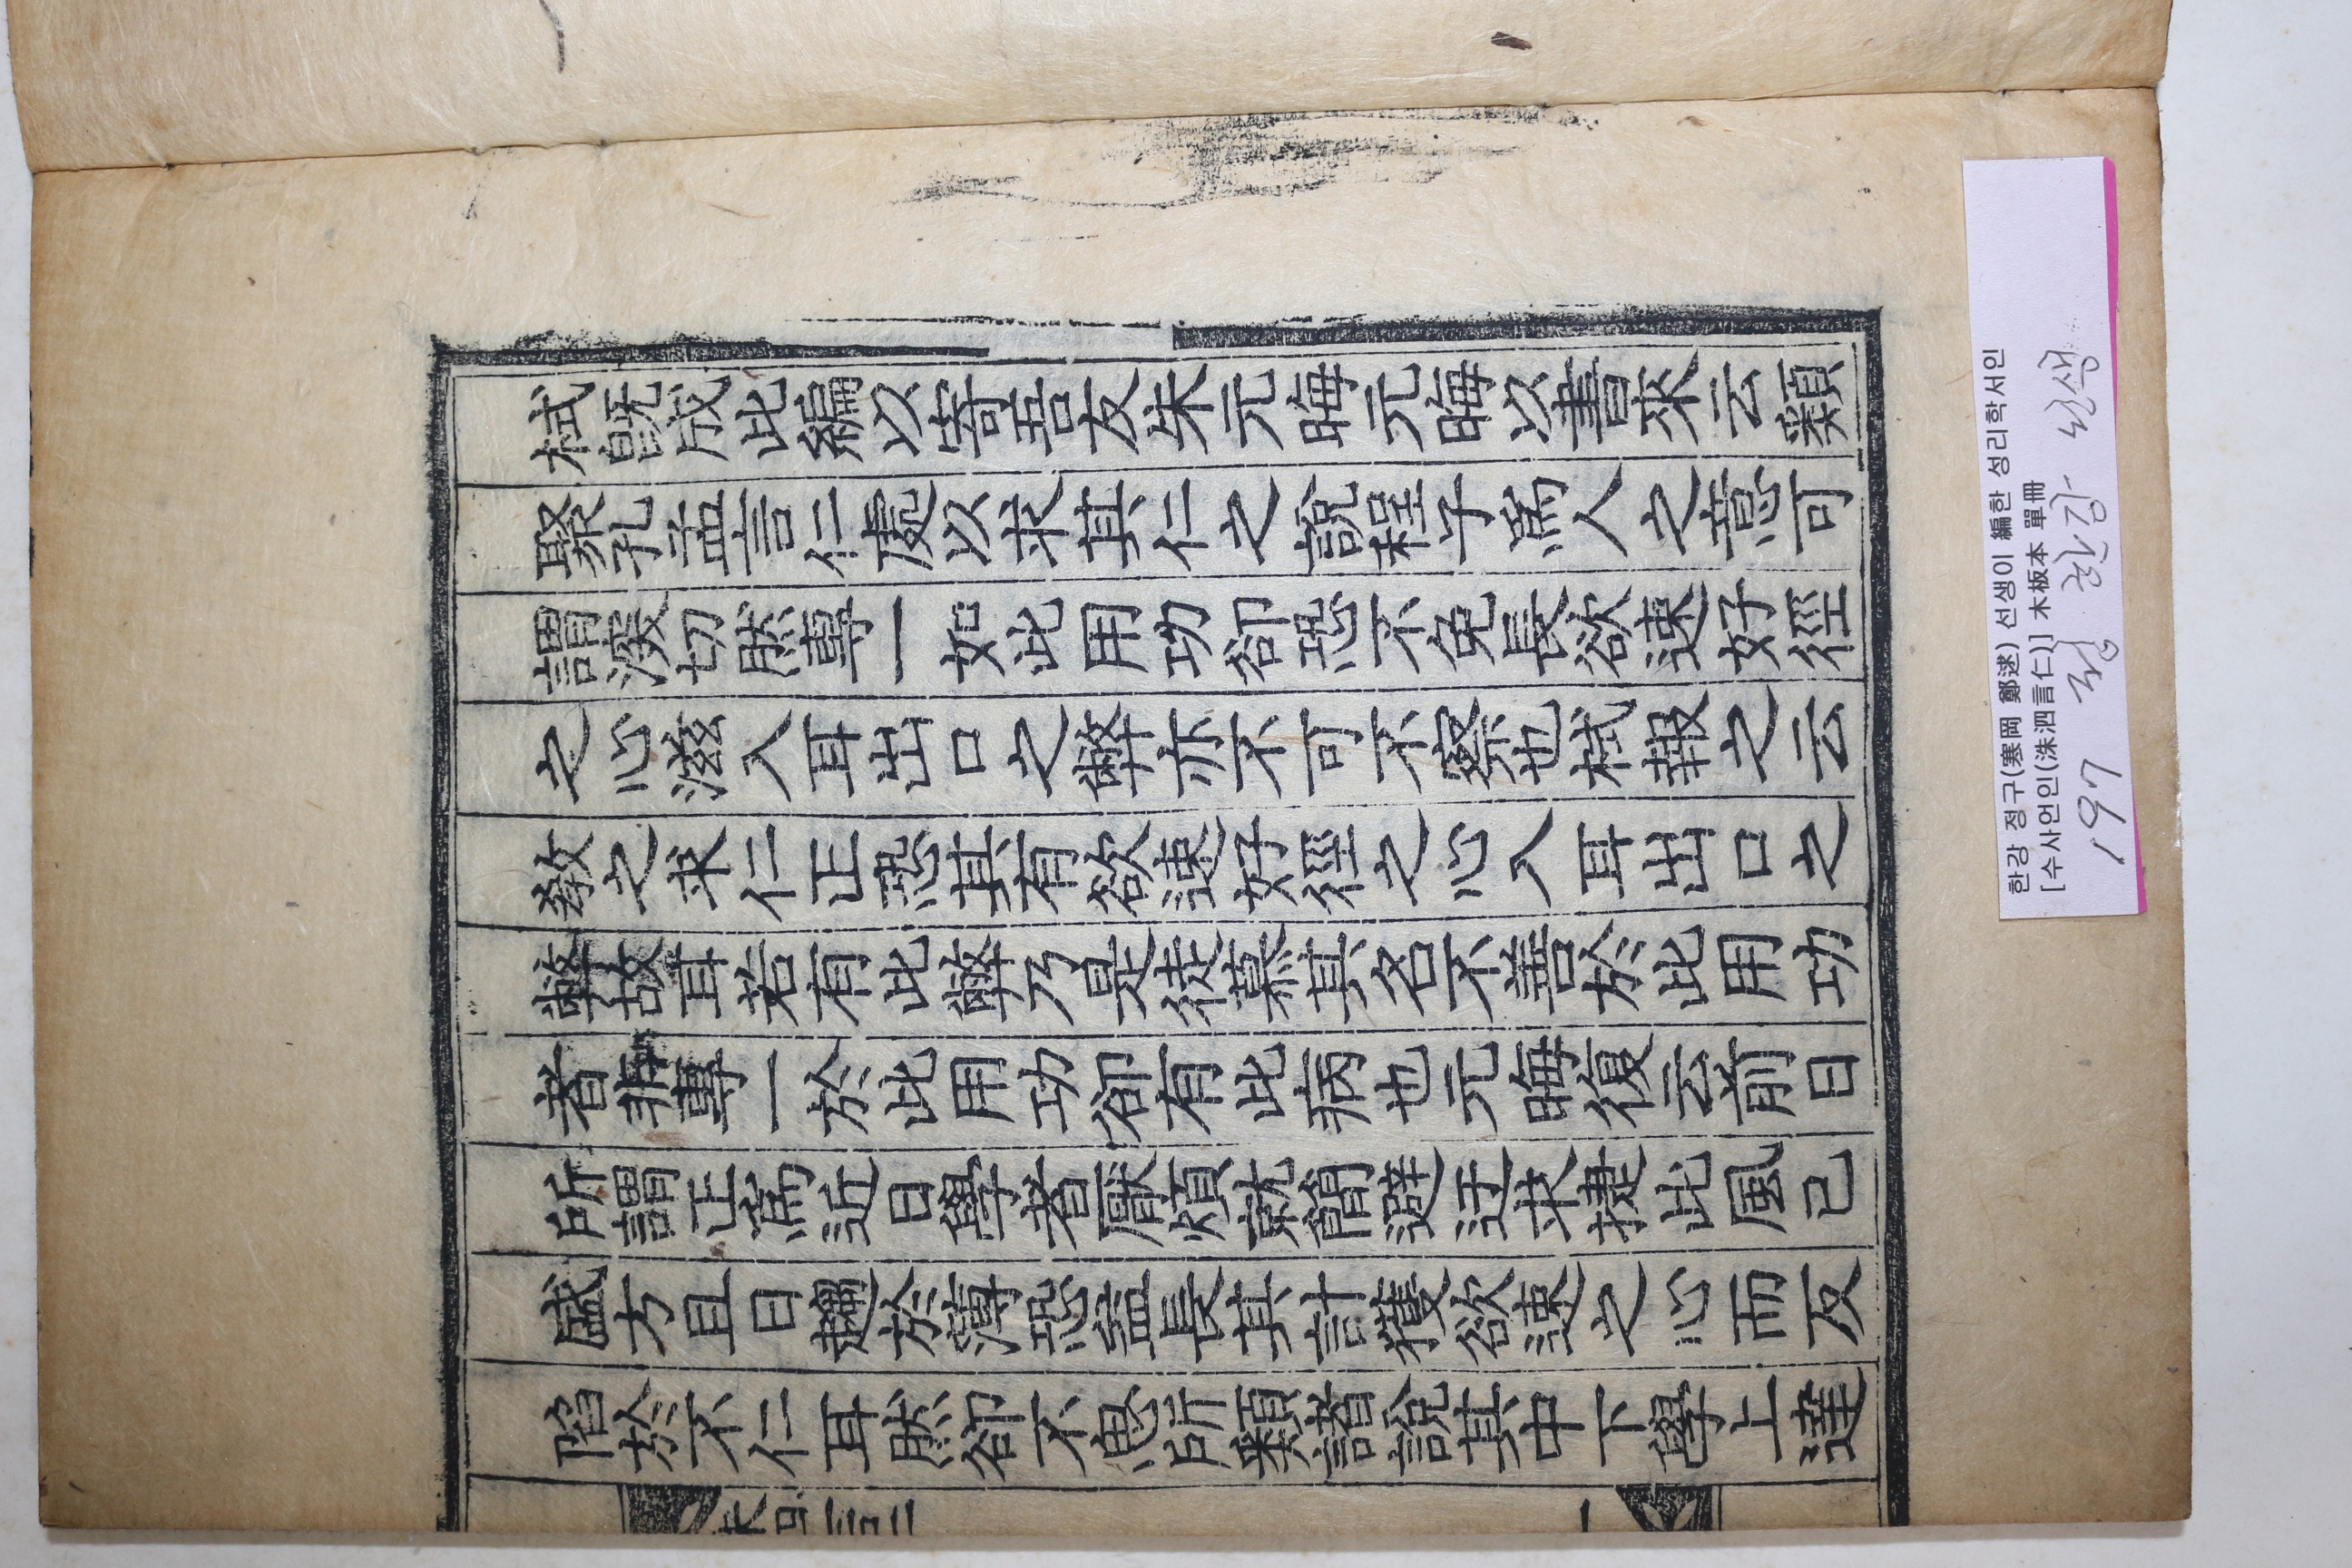 栻旣成此編以寄吾友朱元晦元晦以書來云類
聚孔孟言仁處以求其仁之說程子爲人之意可
謂深切然專一如此用功卻恐不免長欲速好徑
之心滋入耳出口之弊亦不可不察也栻報之云
敎之求仁正恐其有欲速好徑之心入耳出口之
弊故耳若有此弊乃是徒慕其名不善於此用功
者非專一於此用功卻有此病也元晦復云前日
所謂正爲近日學者厭煩就簡避迂求捷此風已
盛方且日趨於薄恐益長其計獲欲速之心而反
陷於不仁耳然卻不思所類諸說其中下學上達
한강 정구(寒岡 鄭逑) 선생이 編한 성리학서인
[수사언인(洙泗言仁)] 木板本 單冊
197 정 한강 선생